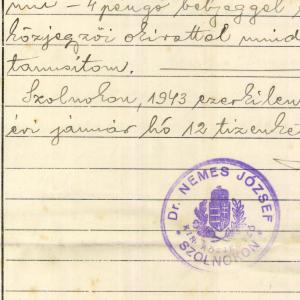 mi - 4 pengő bélyeggel
közjegyzői okirattal mind
tanusítom.
Szolnokon, 1943 ezerkilen
évi január hó 12 tizenké
Dr. NEMES JÓZSEF
KIR. KÖZJEGYZŐ
SZOLNOKON